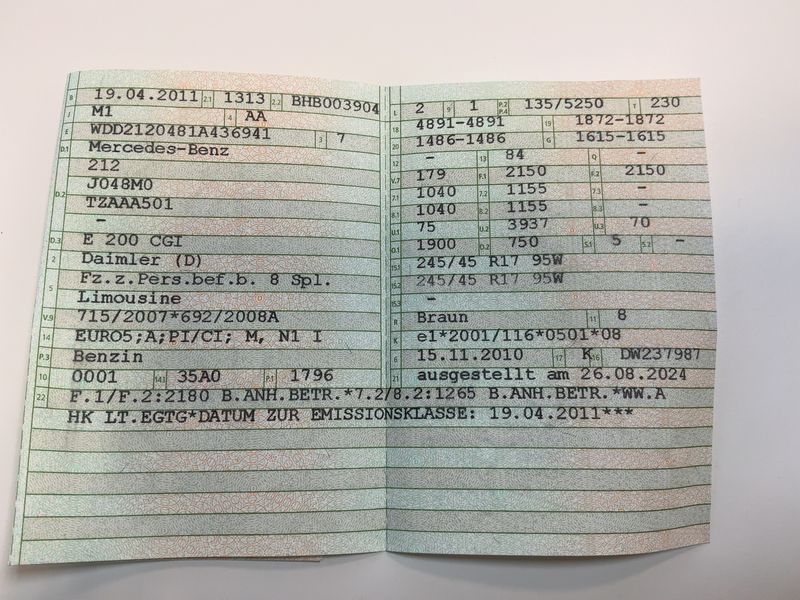 B 19.04.2011 2.1 1313 2.2 BHB003904
J M1 4 AA
E WDD2120481A436941 3 7
D.1 Mercedes-Benz
212
D.2 J048M0
TZAAA501
-
D.3 E 200 CGI
2 Daimler (D)
5 Fz.z.Pers.bef.b. 8 Spl.
Limousine
V.9 715/2007*692/2008A
14 EURO5;A;PI/CI; M, N1 I
P.3 Benzin
10 0001 14.1 35A0 P.1 1796
L 2 9 1 P.2 P.4 135/5250 T 230
18 4891-4891 19 1872-1872
20 1486-1486 G 1615-1615
12 - 13 84 Q -
V.7 179 F.1 2150 F.2 2150
7.1 1040 7.2 1155 7.3 -
8.1 1040 8.2 1155 8.3 -
U.1 75 U.2 3937 U.3 70
O.1 1900 O.2 750 S.1 5 S.2 -
15.1 245/45 R17 95W
15.2 245/45 R17 95W
15.3 -
R Braun 11 8
K e1*2001/116*0501*08
6 15.11.2010 17 K 16 DW237987
21 ausgestellt am 26.08.2024
22 F.1/F.2:2180 B.ANH.BETR.*7.2/8.2:1265 B.ANH.BETR.*WW.A
HK LT.EGTG*DATUM ZUR EMISSIONSKLASSE: 19.04.2011***